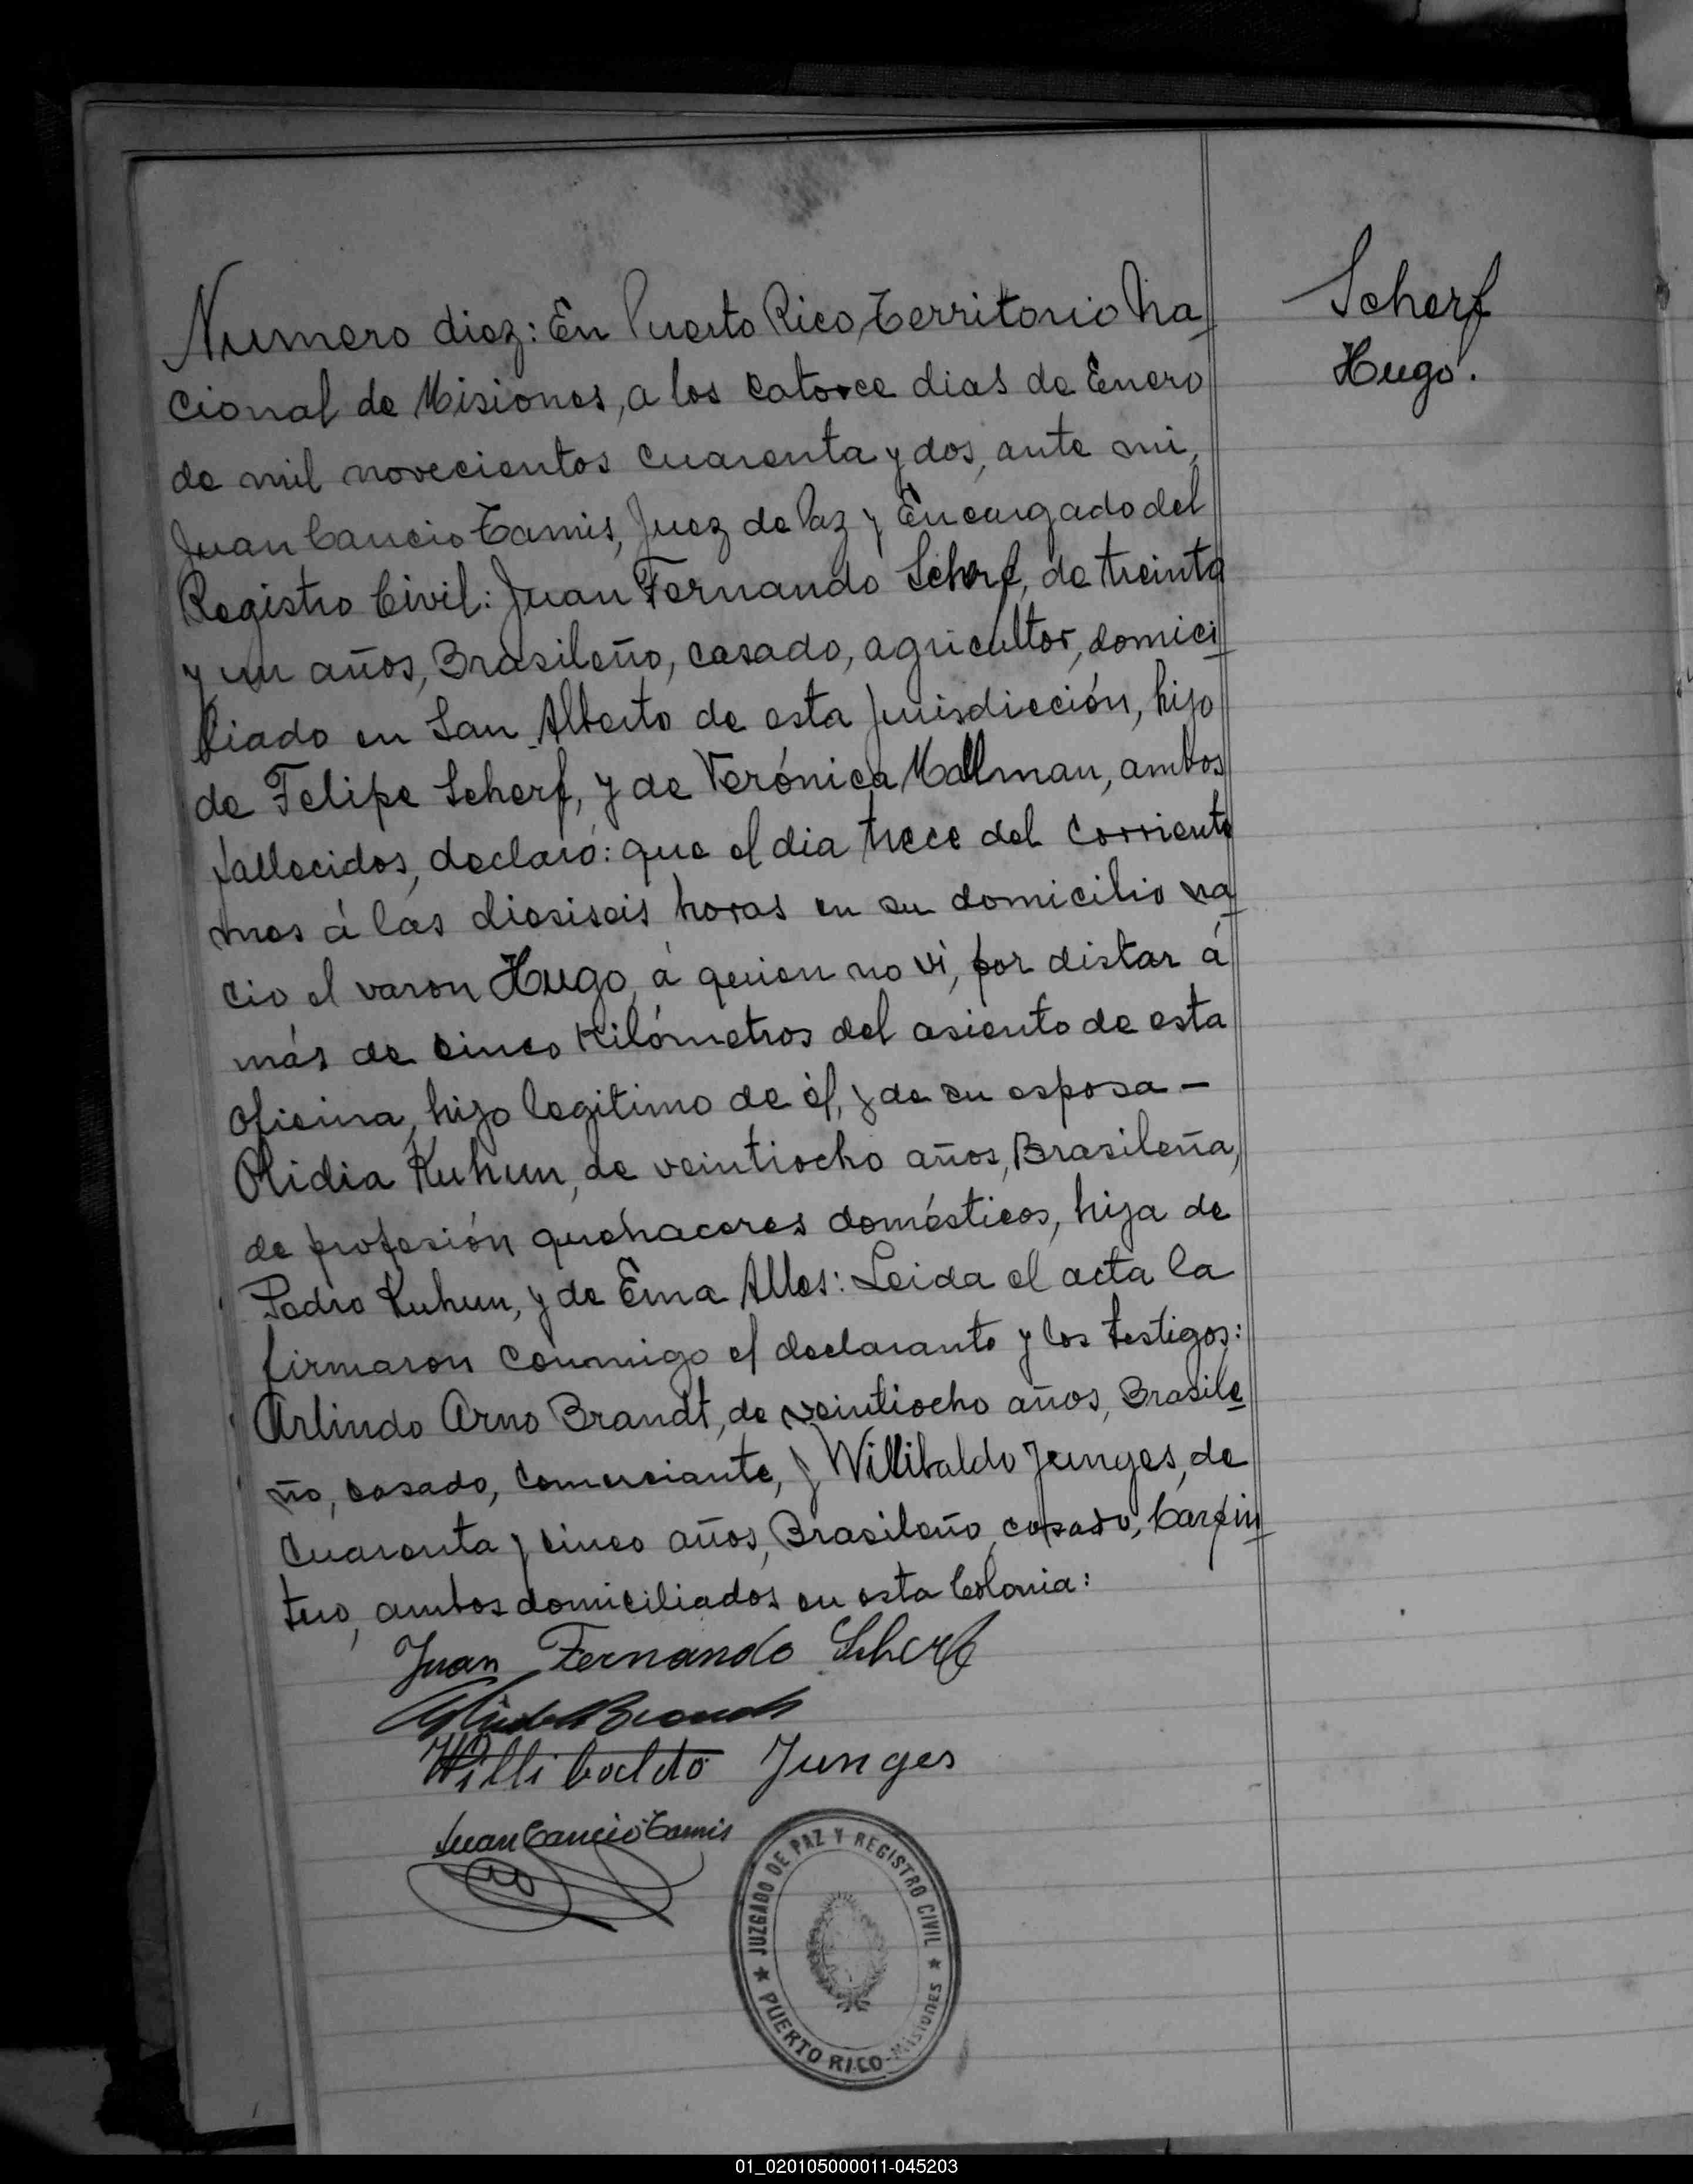 Scherf
Hugo.
Numero diez: En Puerto Rico, Territorio Na
cional de Misiones, a los catorce dias de Enero
de mil novecientos cuarenta y dos, ante mi,
Juan Cancio Tamis, Juez de Paz y Encargado del
Registro Civil: Juan Fernando Scherf, de treinta
y un años, Brasileño, casado, agricultor, domici
liado en San Alberto de esta jurisdicción, hijo
de Felipe Scherf, y de Verónica Mallman, ambos
fallecidos, declaró: que el dia trece del corriente
mes á las diesiseis horas en su domicilio na
cio el varon Hugo, á quien no vi, por distar á
más de cinco Kilómetros del asiento de esta
oficina, hijo legitimo de él, y de su esposa –
Olidia Kuhun, de veintiocho años, Brasileña,
de profesión quehaceres domésticos, hija de
Pedro Kuhun, y de Ema Alles: Leida el acta la
firmaron conmigo el declarante y los testigos:
Arlindo Arno Brandt, de veintiocho años, Brasile
ño, casado, comerciante, y Willibaldo Junges, de
cuarenta y cinco años, Brasileño, casado, Carpin
tero, ambos domiciliados en esta Colonia:
Juan Fernando Scherf
Arlindo Brandt
Willibaldo Junges
Juan Cancio Tamis
JUZGADO DE PAZ Y REGISTRO CIVIL
★ PUERTO RICO-Misiones ★
01_020105000011-045203